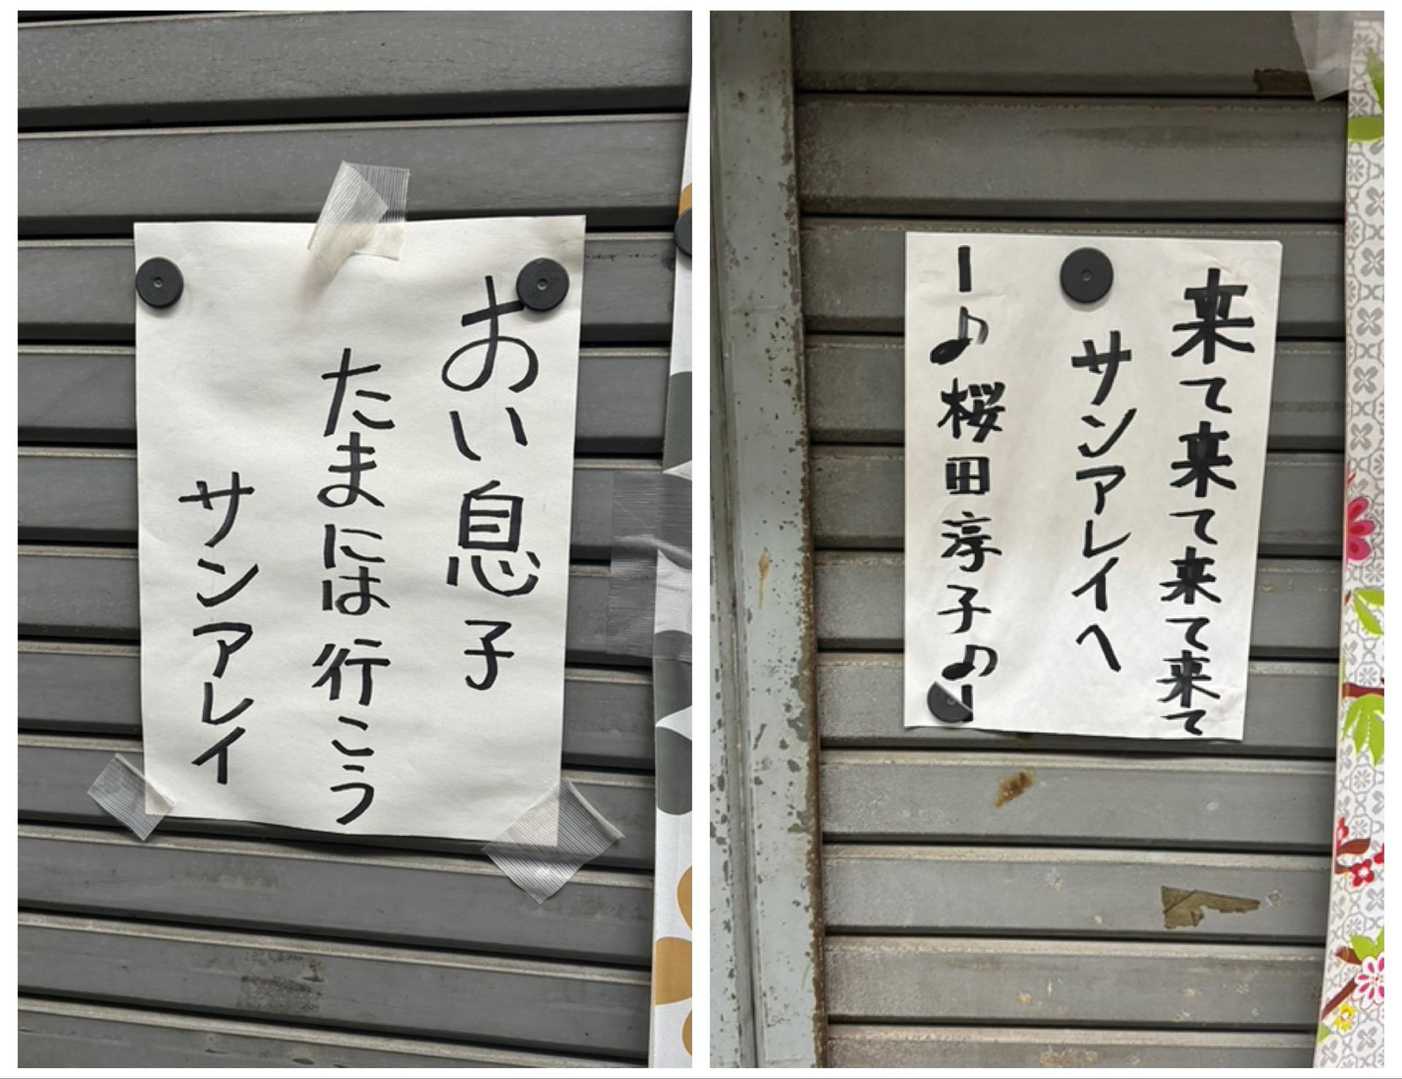 おい息子
たまには行こう
サンアレイ
来て来て来て来て
サンアレイへ
ー♪桜田淳子♪ー